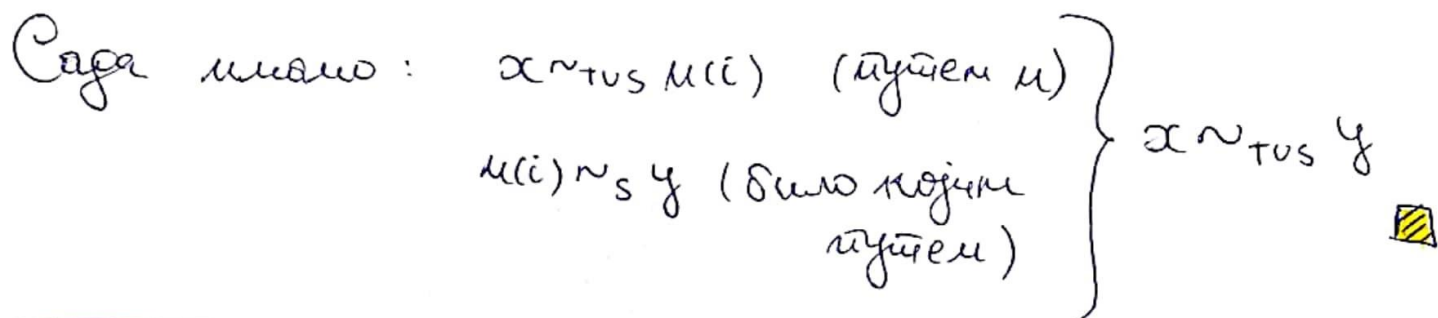 Сада имамо: x ~T∪S μ(i) (путем μ)
μ(i) ~S y (било којим
путем)
x ~T∪S y